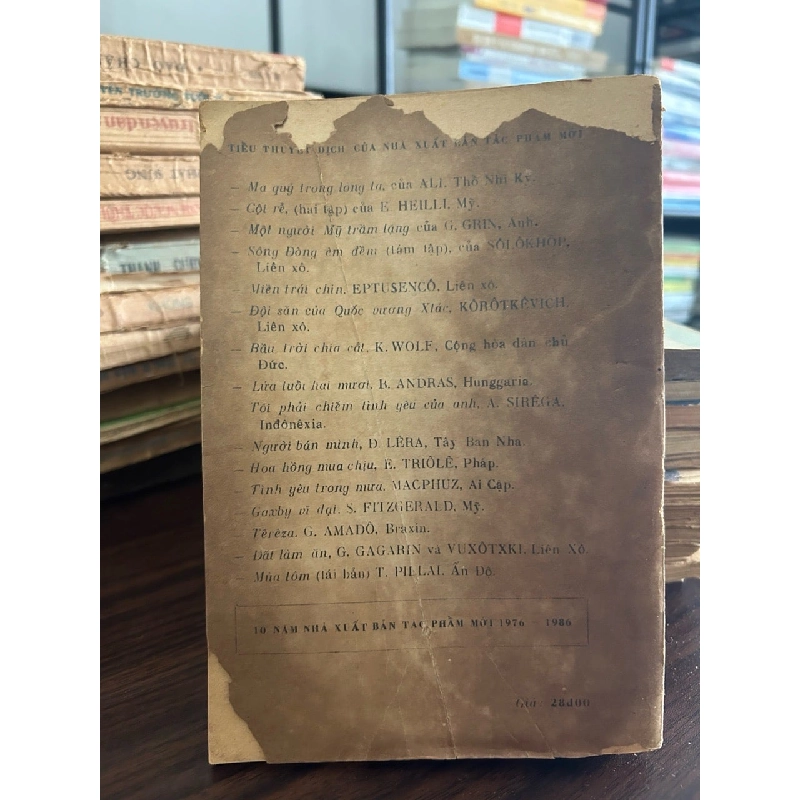 TIỂU THUYẾT DỊCH CỦA NHÀ XUẤT BẢN TÁC PHẨM MỚI
— Ma quỷ trong lòng ta, của ALI, Thổ Nhĩ Kỳ.
— Cội rễ, (hai tập) của E. HEILLI, Mỹ.
— Một người Mỹ trầm lặng của G. GRIN, Anh.
— Sông Đông êm đềm (tám tập), của SÔLÔKHỐP,
Liên xô.
— Miền trái chín, EPTUSENCÔ, Liên xô.
— Đội săn của Quốc vương Xtác, KÔRÔTKÊVICH,
Liên xô.
— Bầu trời chia cắt, K. WOLF, Cộng hòa dân chủ
Đức.
— Lứa tuổi hai mươi, B. ANDRAS, Hunggaria.
Tôi phải chiếm tình yêu của anh, A. SIRÊGA,
Inđônêxia.
— Người bán mình, Đ. LÊRA, Tây Ban Nha.
— Hoa hồng mua chịu, E. TRIÔLÊ, Pháp.
— Tình yêu trong mưa, MACPHUZ, Ai Cập.
— Gaxby vĩ đại, S. FITZGERALD, Mỹ.
Têrêza, G. AMADÔ, Braxin.
— Đất làm ăn, G. GAGARIN và VUXÔTXKI, Liên Xô.
Mùa tôm (tái bản) T. PILLAI, Ấn Độ.
10 NĂM NHÀ XUẤT BẢN TÁC PHẨM MỚI 1976 - 1986
Giá 28đ00